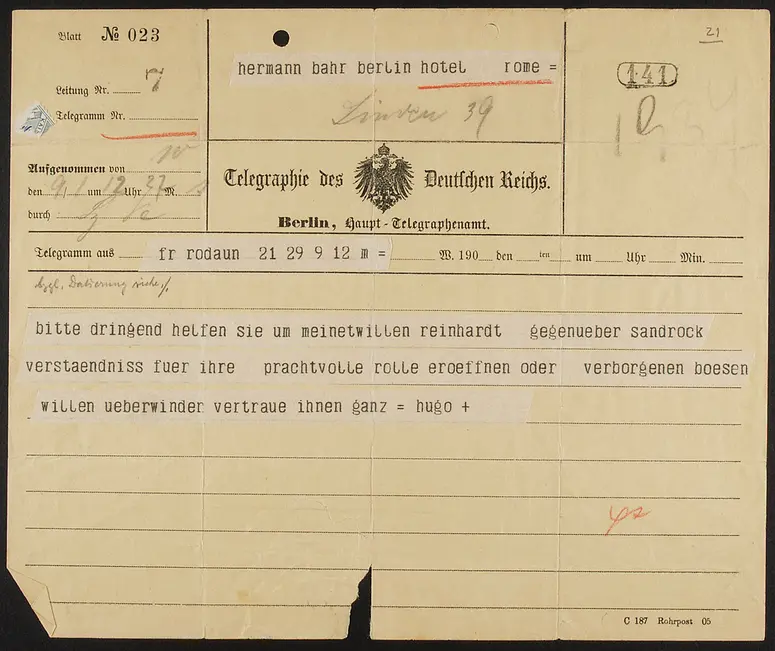 21
Blatt № 023
hermann bahr berlin hotel rome =
141
Leitung Nr. 7
Linden 39
Telegramm Nr.
Aufgenommen von
den 9/1 um 12 Uhr 27 M.
durch
Telegraphie des Deutschen Reichs.
Berlin, Haupt-Telegraphenamt.
Telegramm aus fr rodaun 21 29 9 12 m = W. 190 den ten um Uhr Min.
bzgl. Datierung siehe
bitte dringend helfen sie um meinetwillen reinhardt gegenueber sandrock
verstaendniss fuer ihre prachtvolle rolle eroeffnen oder verborgenen boesen
willen ueberwinder vertraue ihnen ganz = hugo +
C 187 Rohrpost 05